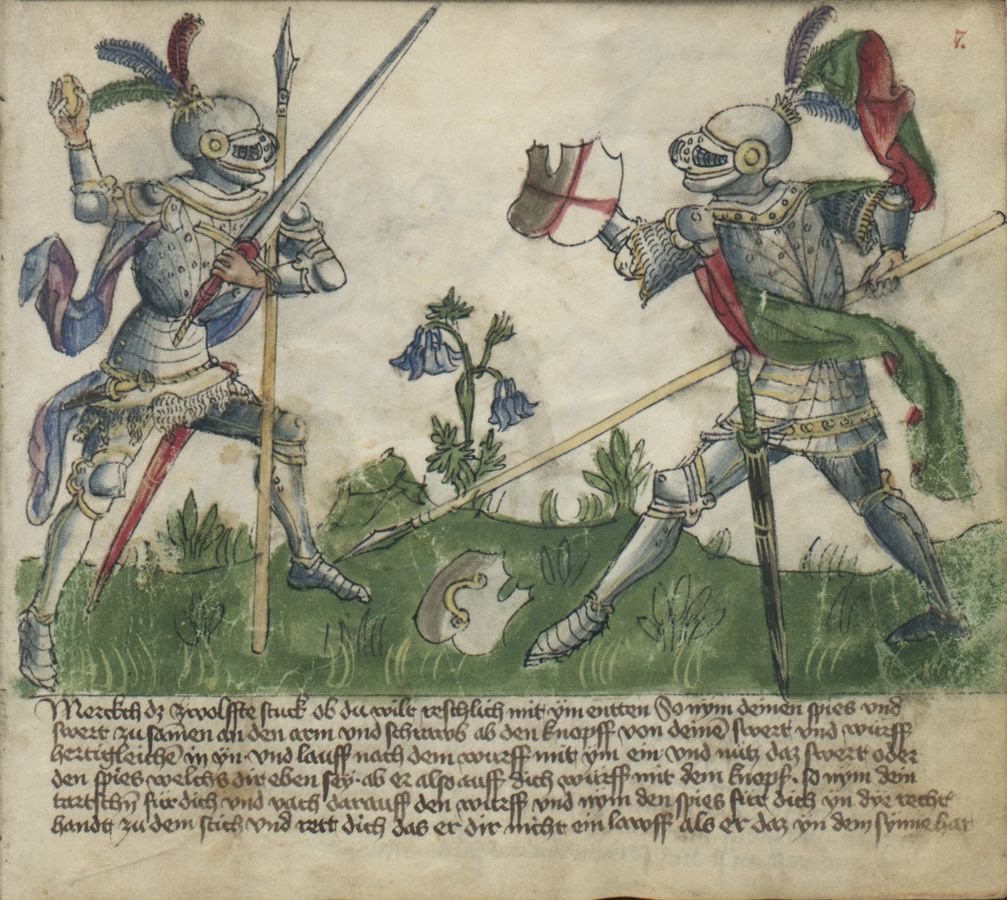 7.
Merckch dz zwolffte stuck ob du wilt reschlich mit ym entten So nym deinen spies vnd
swert zu samen an den arm vnd schrawb ab den knopff von deinē swert vnd wurff
hertigleichē in yn · vnd lauff nach dem wurff mit ym ein · vnd nutz daz swert oder
den spies welchs dir eben sey · ab er also auff dich wurff mit dem knopf · so nym dein
tartschn̄ fur dich vnd vach darauff den wurff vnd nym den spies fur dich yn dye recht
handt zu dem stich vnd rett dich das er dir nicht ein lawff als er daz yn dem synne hat